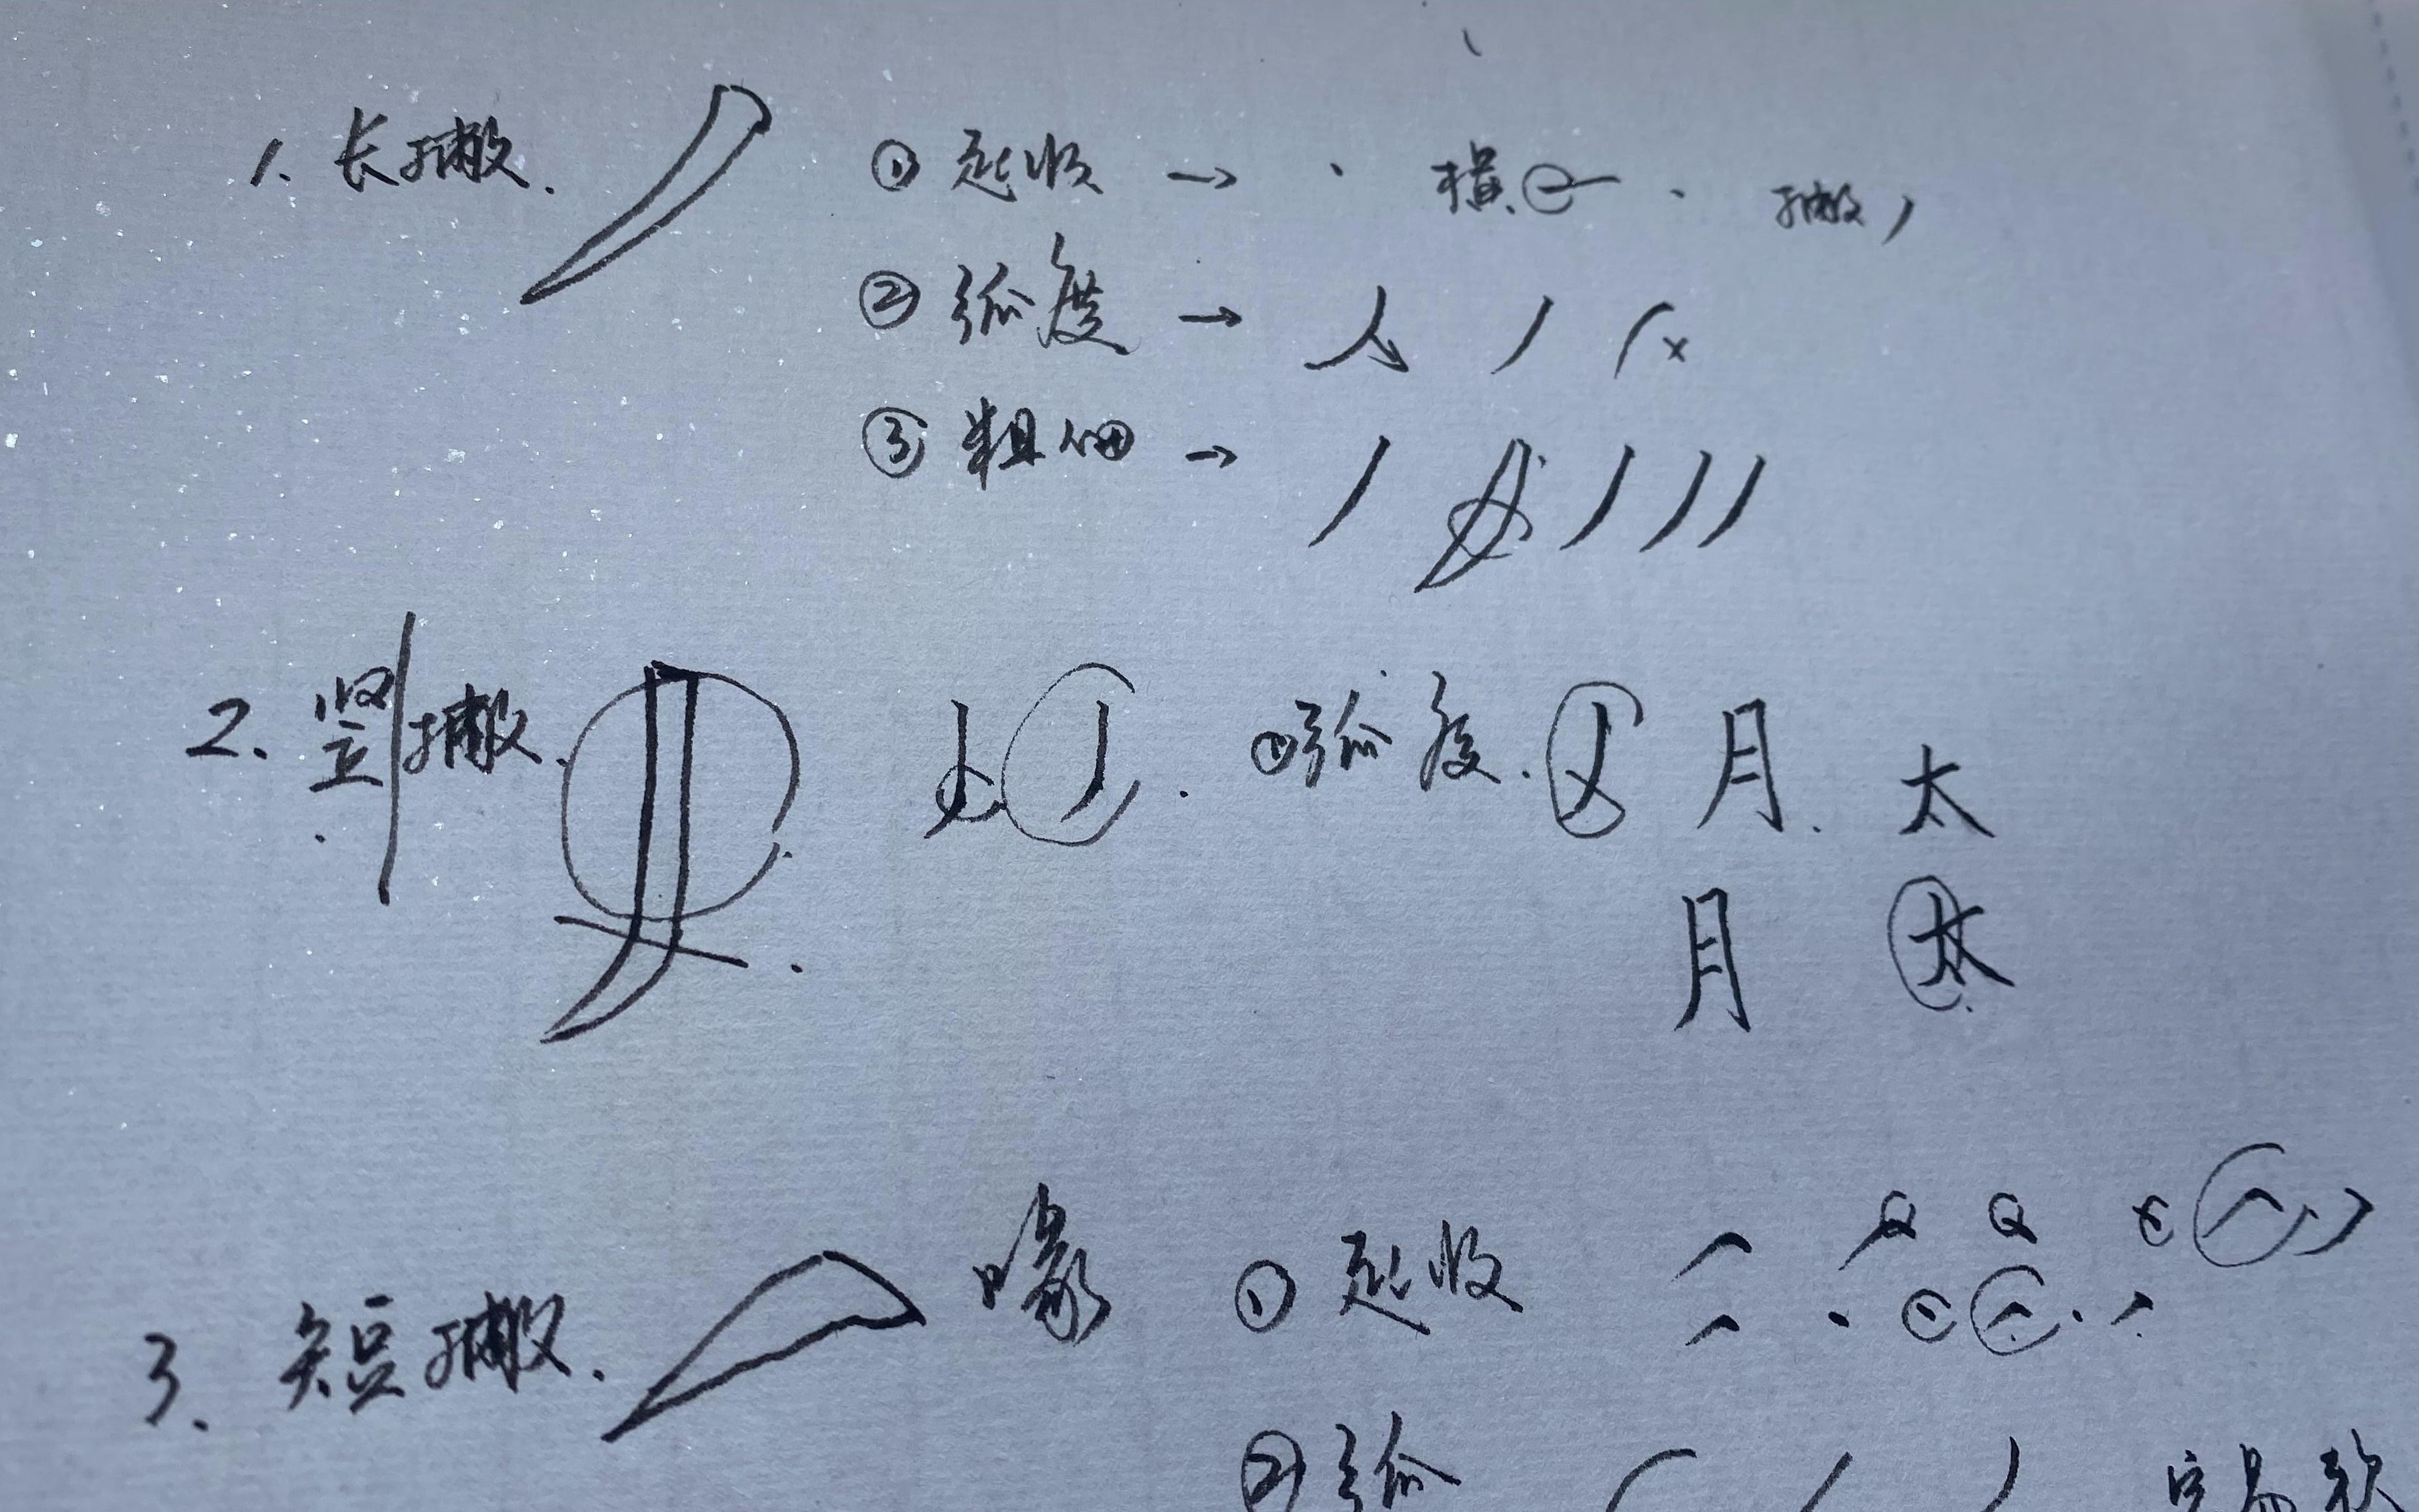 1. 长撇.
① 起收 → 横 撇
② 弧度 → 人
③ 粗细 →
2. 竖撇. ① 弧度. 月 太
月 太
3. 短撇. 喙 ① 起收
② 弧